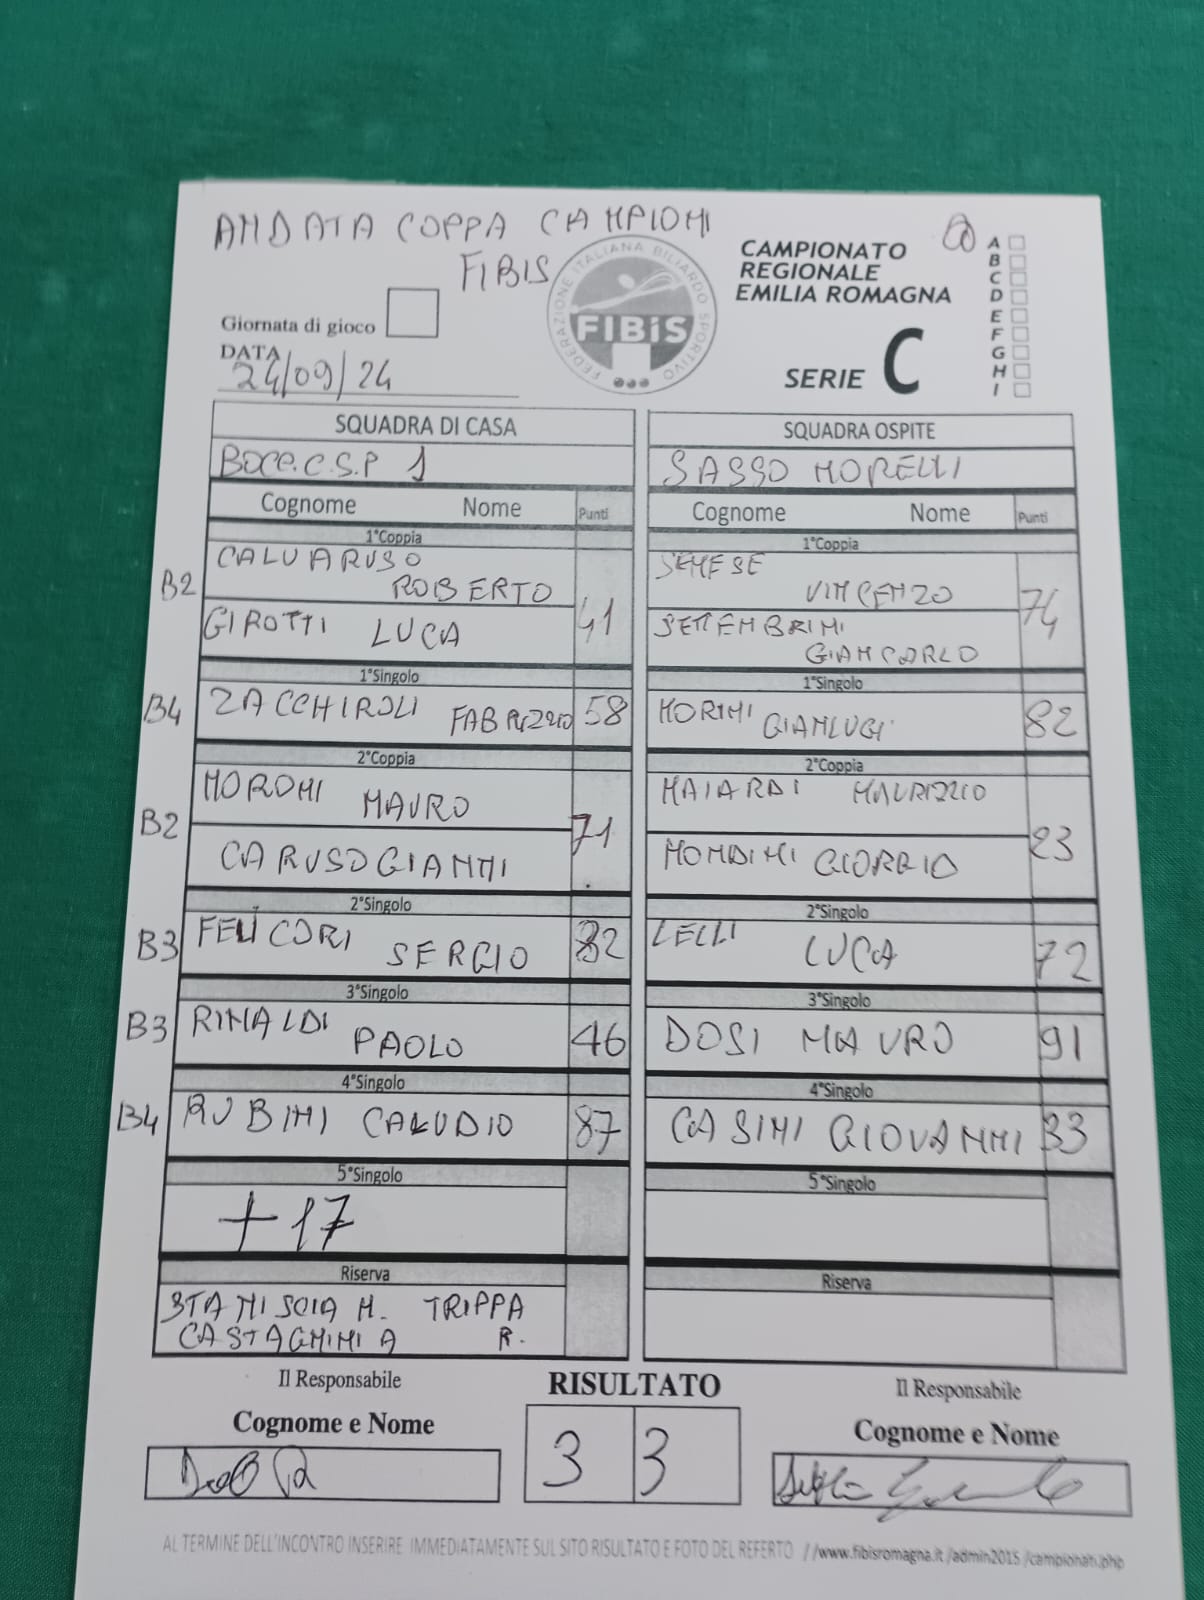 ANDATA COPPA CAMPIONI
FIBIS
FEDERAZIONE ITALIANA BILIARDO SPORTIVO
FIBiS
CAMPIONATO
REGIONALE
EMILIA ROMAGNA
SERIE C
A
B
C
D
E
F
G
H
I
Giornata di gioco
DATA 24/09/24
SQUADRA DI CASA
SQUADRA OSPITE
BOCC.C.S.P 1
SASSO MORELLI
Cognome Nome Punti
Cognome Nome Punti
1°Coppia
1°Coppia
B2 CALVARUSO
ROBERTO
GIROTTI LUCA 41
SENESE
VINCENZO
SETTEMBRINI
GIANCARLO 74
1°Singolo
1°Singolo
B4 ZACCHIROLI FABRIZZIO 58
MORINI GIANLUGI 82
2°Coppia
2°Coppia
B2 MORONI MAURO
CARUSO GIANNI 71
MAIARDI MAURIZZIO
MONDINI GIORGIO 23
2°Singolo
2°Singolo
B3 FELICORI SERGIO 82
LELLI LUCA 72
3°Singolo
3°Singolo
B3 RINALDI PAOLO 46
DOSI MAURO 91
4°Singolo
4°Singolo
B4 RUBINI CALUDIO 87
CASINI GIOVANNI 33
5°Singolo
5°Singolo
+17
Riserva
Riserva
STANISCIA M. TRIPPA
CASTAGNINI A R.
Il Responsabile
RISULTATO
Il Responsabile
Cognome e Nome
Cognome e Nome
3 3
AL TERMINE DELL'INCONTRO INSERIRE IMMEDIATAMENTE SUL SITO RISULTATO E FOTO DEL REFERTO //www.fibisromagna.it /admin2015 /campionati.php